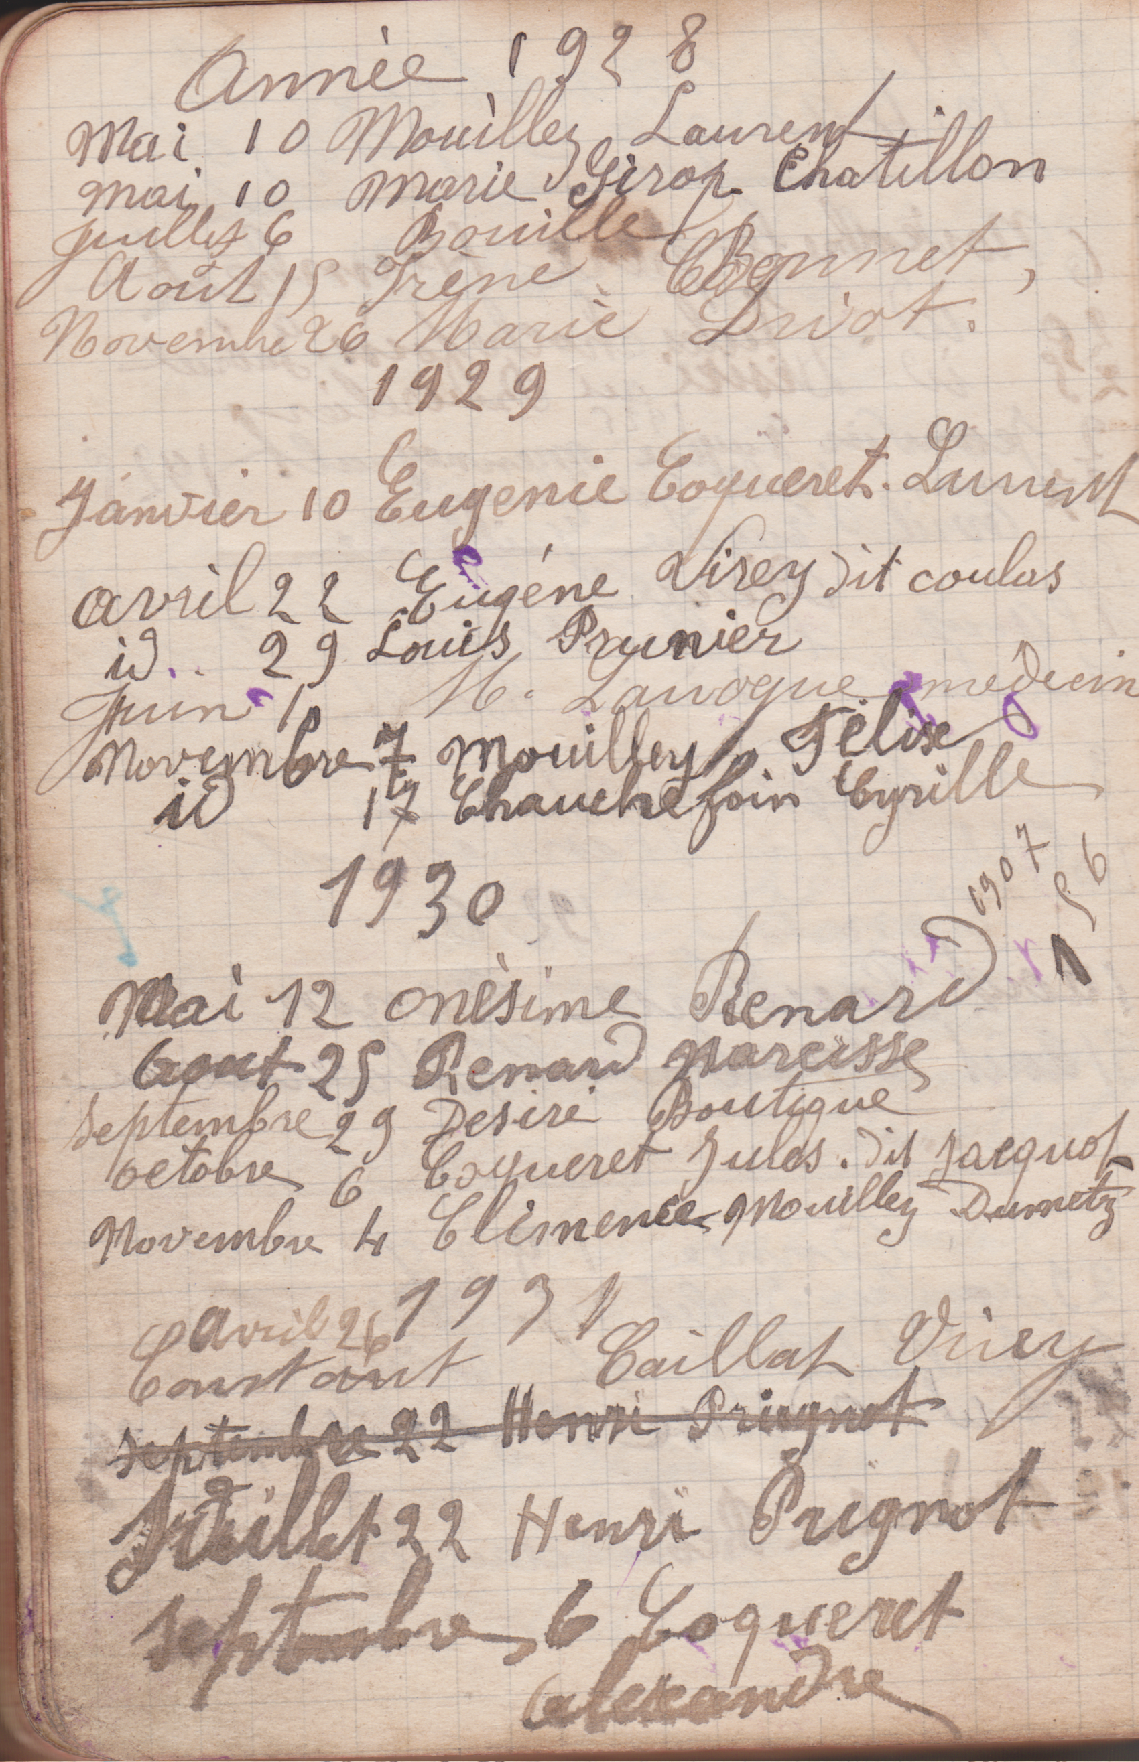 Année 1928
Mai 10 Mouilley Laurent
Mai 10 Marie Girop. Chatillon
Juillet 6 Bouille
Août 15 Irène Bonnet,
Novembre 26 Marie Privot.
1929
Janvier 10 Eugenie Coqueret. Laurent
avril 22 Eugéne Virey dit coulas
id.. 29 Louis Prunier
Juin 1 M. Lavogue médecin
Novembre 7 Mouilley Félise
id 17 Chauchefoin Cyrille
1930
1907
56
1
Mai 12 Onèsime Renard
Aout 25 Renard Narcisse
Septembre 29 Desiré Boutique
octobre 6 Coqueret Jules. dit Jacquot
Novembre 4 Climence Mouilley Dumetz
1931
avril 26
Constant Caillat Virey
septembre 22 Henri Prignot
Juillet 22 Henri Prignot
septembre 6 Coqueret
alexandre